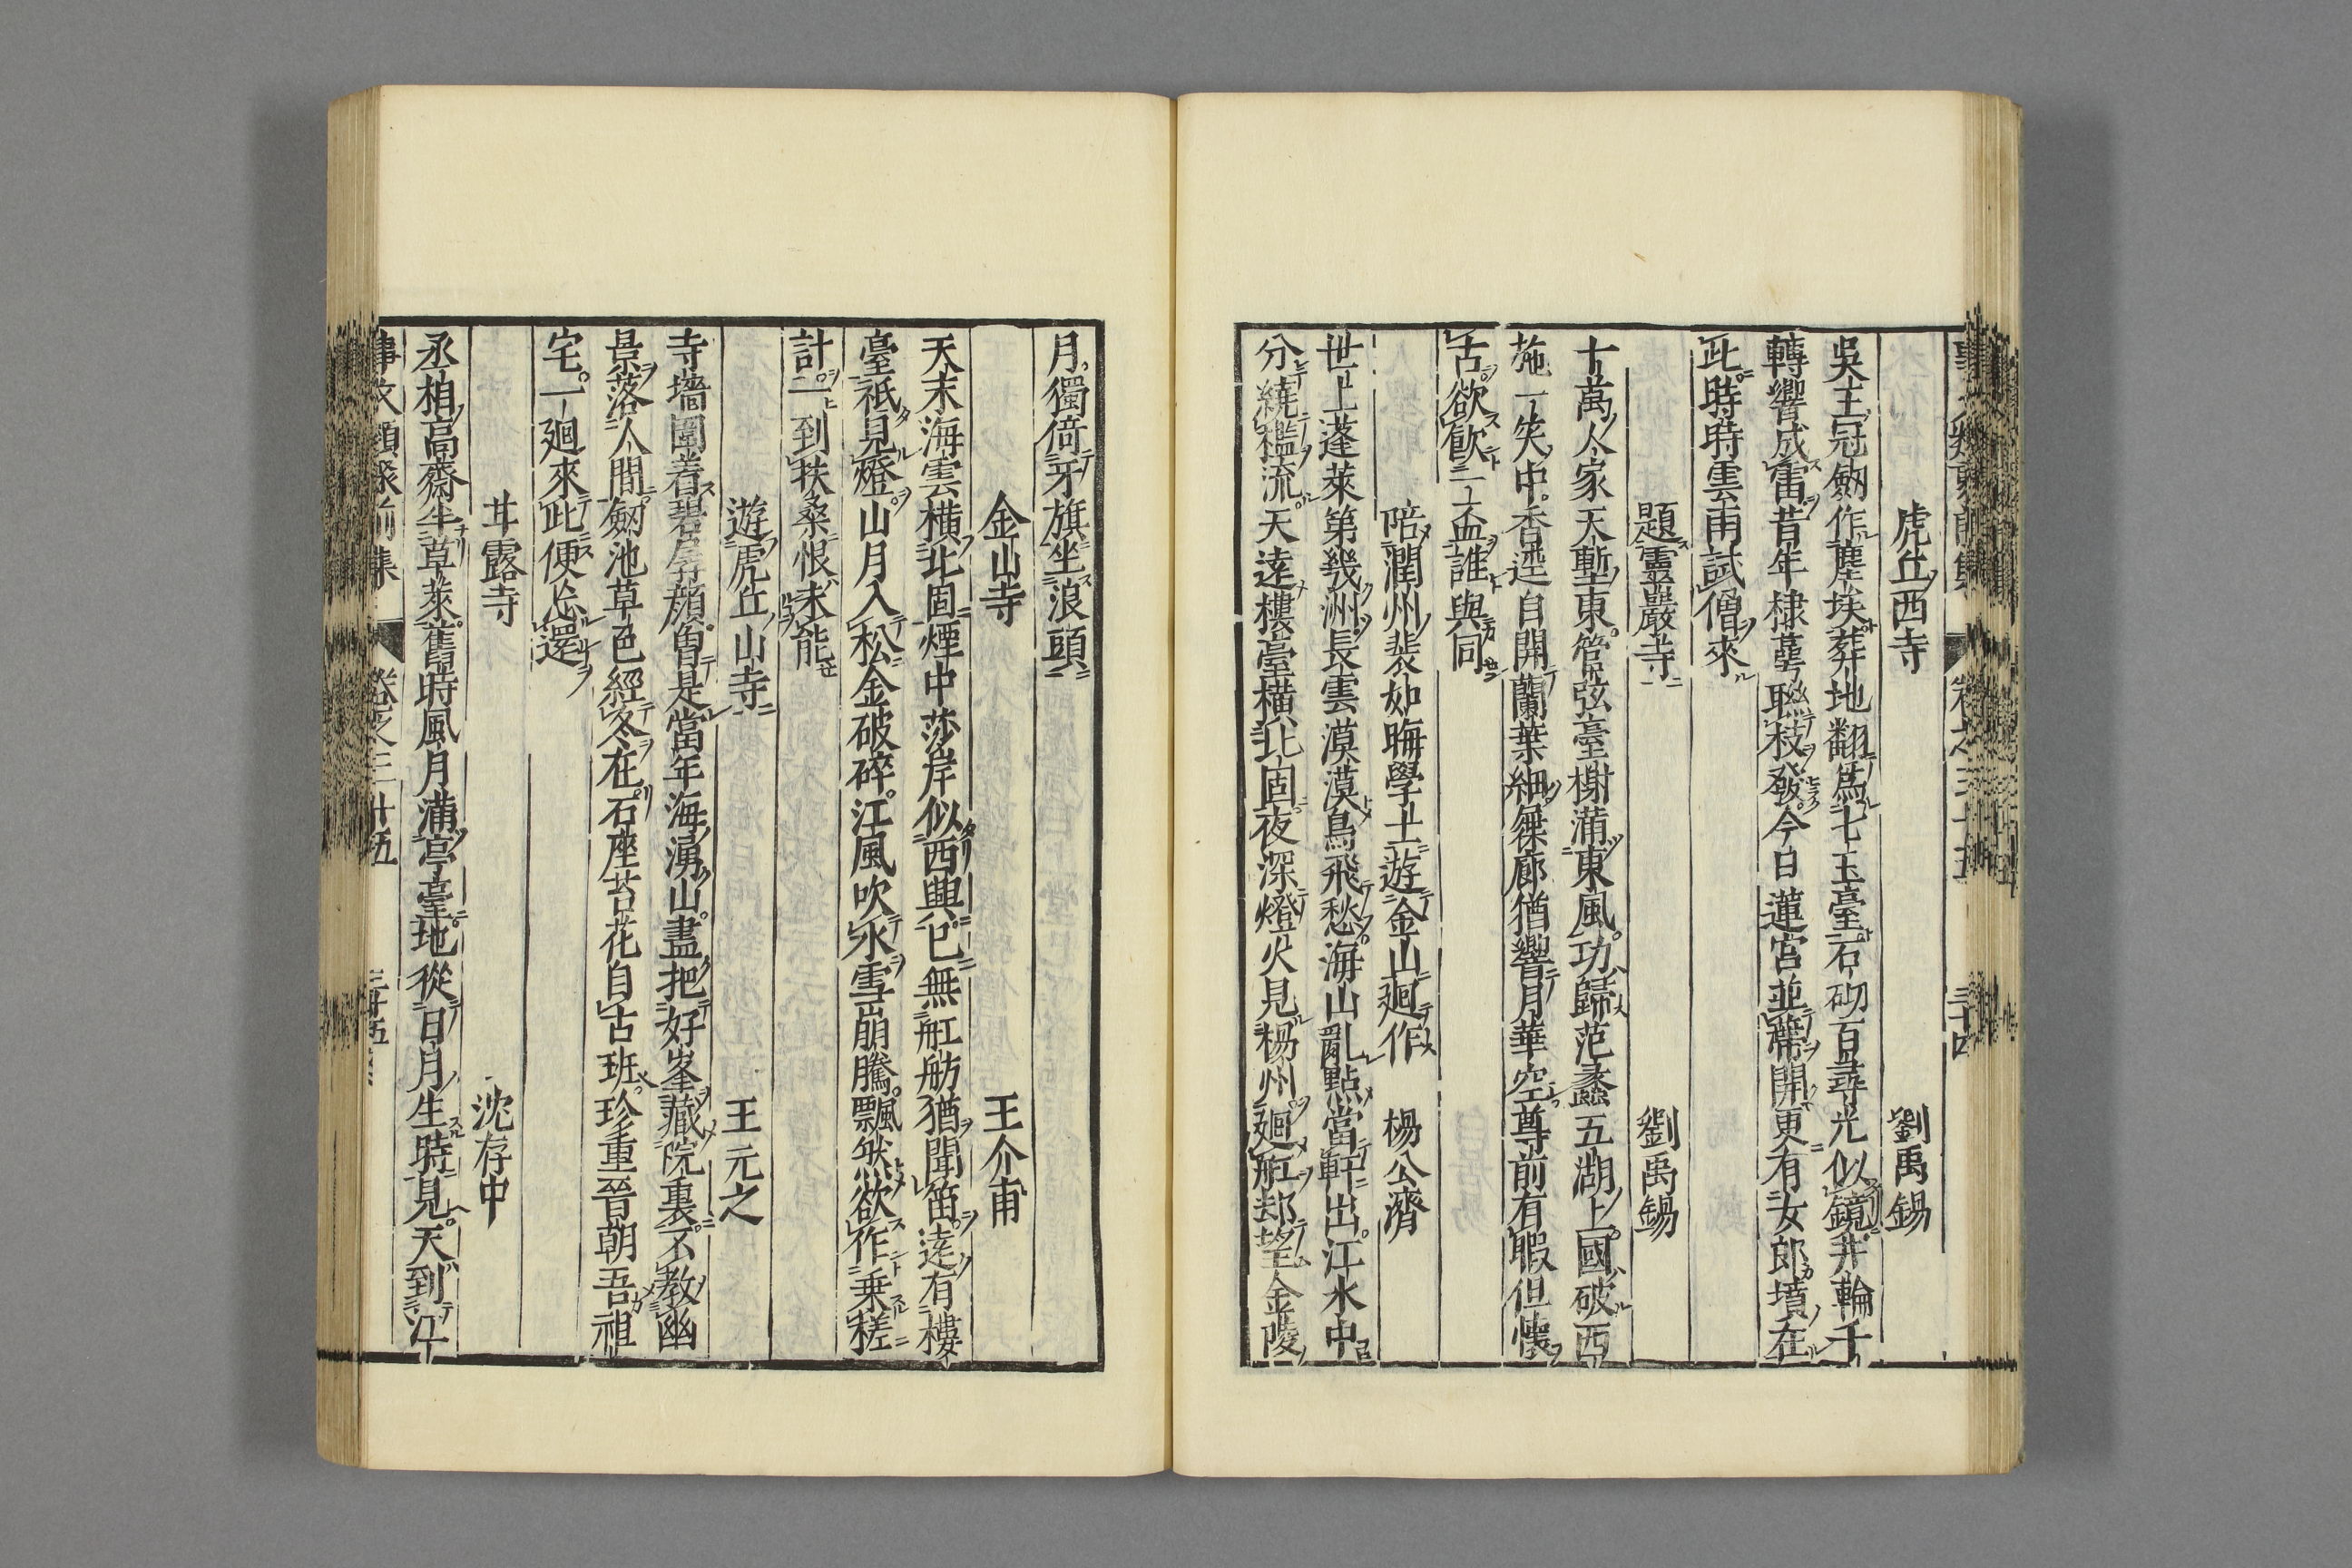 虎丘西寺 劉禹錫
吳王冠劔作塵埃葬地翻爲七玉臺石砌百尋光似鏡井輪千
轉響成雷昔年棣萼聮枝發今日蓮宮並蔕開更有女郎墳在
此時時雲雨試僧來
題靈巖寺 劉禹錫
十萬人家天塹東管弦臺榭滿東風功歸范蠡五湖上國破西
施一笑中香逕自開蘭葉細屧廊猶響月華空尊前有暇但懷
古欲飮三盃誰與同
陪潤州裴如晦學士遊金山廻作 楊公濟
世上蓬萊第幾洲長雲漠漠鳥飛愁海山亂點當軒出江水中
分繞檻流天遠樓臺橫北固夜深燈火見楊州廻舡却望金陵
月獨倚牙旗坐浪頭
金山寺 王介甫
天末海雲橫北固煙中莎岸似西興已無舡舫猶聞笛遠有樓
臺祗見燈山月入松金破碎江風吹水雪崩騰飄然欲作乗槎
計一到扶桑恨未能
遊虎丘山寺 王元之
寺墻圍着碧孱顔曾是當年海湧山盡把好峯藏院裏不教幽
景落人間劔池草色經冬在石座苔花自古班珍重晉朝吾祖
宅一廻來此便忘還
甘露寺 沈存中
丞相高齋半草萊舊時風月滿亭臺地從日月生時見天到江
事文類聚前集 卷之三十五